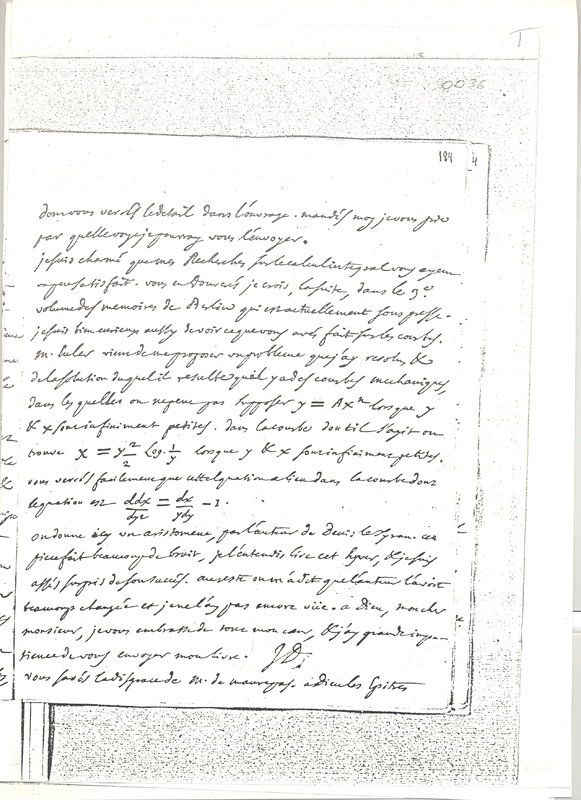 1
0036
184 4
dont vous verrés le detail dans l'ouvrage. mandés moy je vous prie
par quelle voye je pourray vous l'envoyer.
je suis charmé que mes Recherches sur le calcul integral vous ayent
un peu satisfait. vous en trouverés je crois, la suite, dans le 3e
volume des memoires de Berlin qui est actuellement sous presse.
je suis bien curieux aussy de voir ce que vous avés fait sur les courbes.
M. Euler vient de me proposer un probleme que j'ay resolu, &
de la solution duquel il resulte qu'il y a des courbes mechaniques,
dans les quelles on ne peut pas supposer y = Ax^n lorsque y
& x sont infiniment petites. dans la courbe dont il s'agit on
trouve x = y^2/2 Log. 1/y lorsque y & x sont infiniment petites.
vous verrés facilement que cette equation a lieu dans la courbe dont
l'equation est ddx/dy2 = dx/ydy - 1.
on donne icy un aristomene, par l'auteur de Denis le Tyran. cette
piece fait beaucoup de bruit, je l'entendis lire cet hyver, & je suis
assés surpris de son succés. au reste on m'a dit que l'auteur l'avoit
beaucoup changée et je ne l'ay pas encore vüe. a Dieu, mon cher
monsieur, je vous embrasse de tout mon cœur, & j'ay grande impa-
tience de vous envoyer mon livre.
vous savés la disgrace de M. de Maurepas. a dieu les Epitres